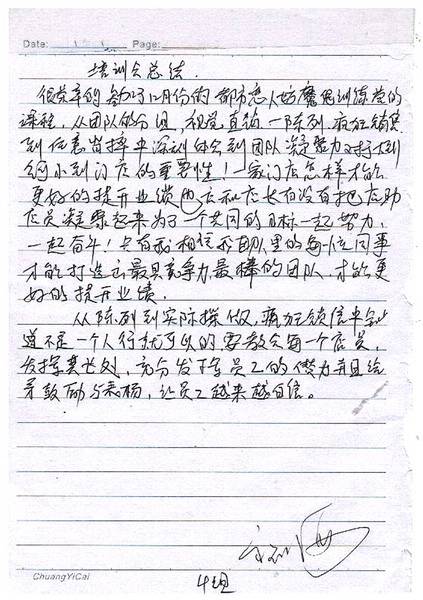 Date: Page:
培训会总结.
很荣幸的参加12月份的 都市恋人 魔鬼训练营的
课程, 从团队的分组, 视觉直销 — 陈列, 疯狂销售
到 深刻体会到团队凝聚力对
小到门店的重要性! 一家门店怎样才能
更好的提升业绩 店和店长有没有把
店员凝聚起来为了一个共同的目标一起努力,
一起奋斗! 只有我相信我团队里的每一位同事
才能打造出最具竞争力最棒的团队, 才能更
好的提升业绩.
从陈列到实际操做, 疯狂销售中知
道不是一个人行就可以的, 要教会每一个店员,
发挥其长处, 充分发挥员工的潜力并且给
予鼓励与表扬, 让员工越来越自信.
4组
ChuangYiCai